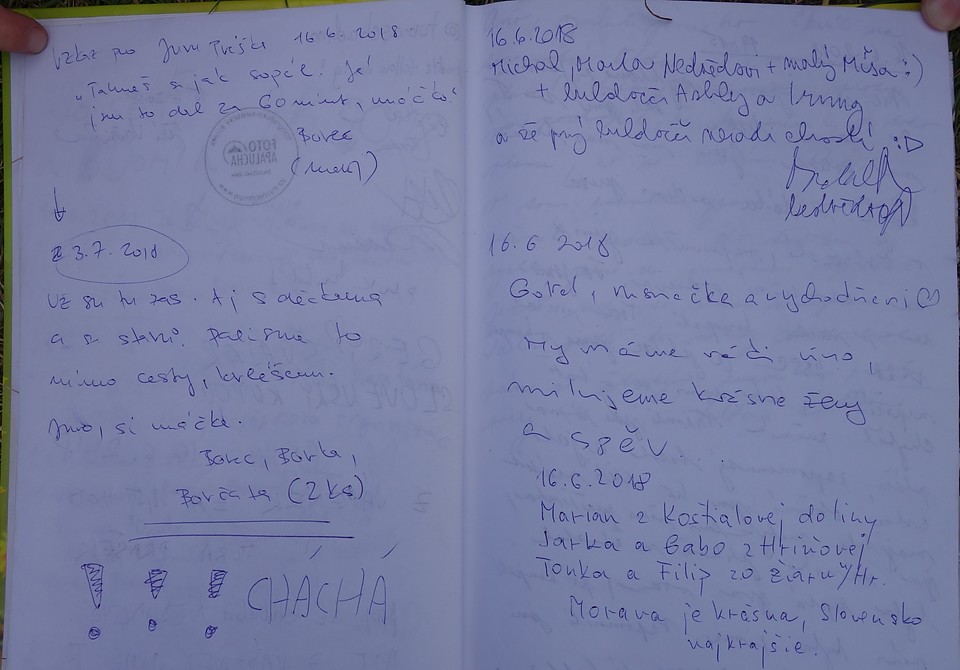 Vzkaz pro Juru 16.6.2018
"Taháš si jak sopče! Já
jsu to dal za 60 minut, máčko."
Borec
FOTO
APALUCHA
3.7.2018
Už su tu zas. Aj s děckama
a su starší. Dali sme to
mimo cesty, krléšem.
Jmo, si máčka.
Borec, Borka,
Borčata (2ks)
!!! CHÁCHÁ
16.6.2018
Michal, Marta Nedvědovi + malý Míša :)
+ buldočci Ashley a Irving
a že prý buldočci neradi chodí! :D
16.6 2018
Gotel, a východňari
My máme rádi víno,
milujeme krásne ženy
a spěv...
16.6.2018
Marian z Koštialovej doliny
Jarka a Gabo z Hriňovej
Tonka a Filip zo Žiaru/Hr.
Morava je krásna, Slovensko
najkrajšie.